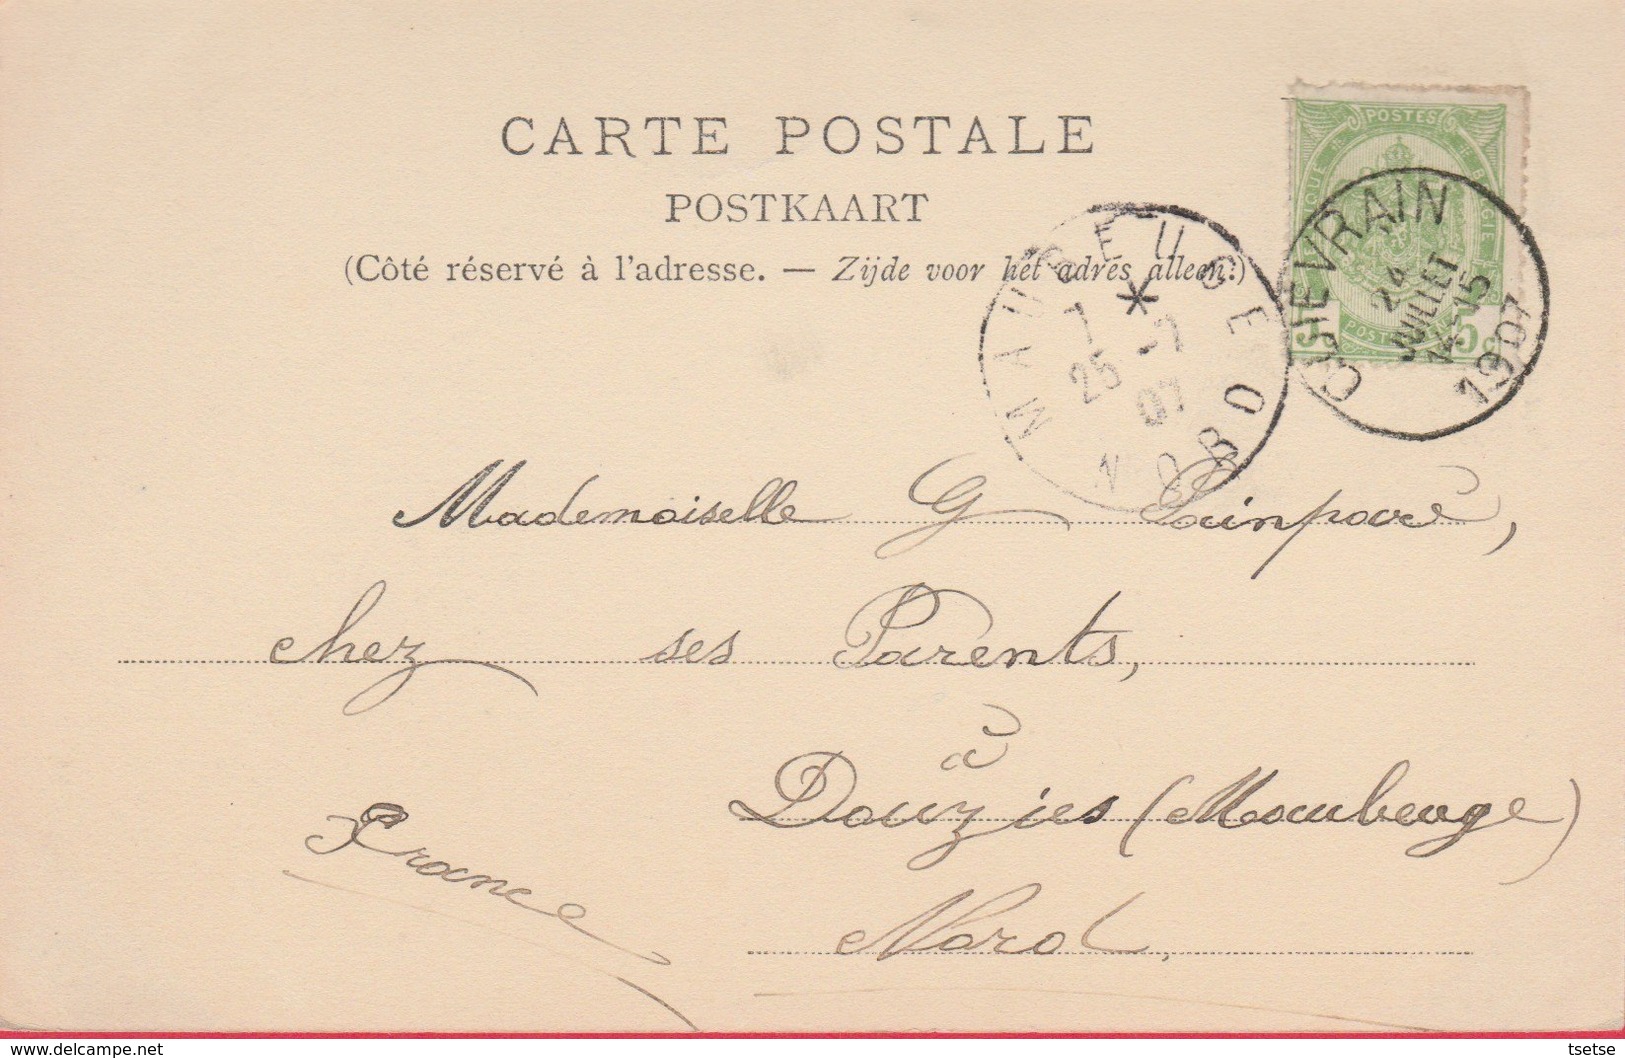 CARTE POSTALE
POSTKAART
(Côté réservé à l'adresse. — Zijde voor het adres alleen.)
POSTES
BELGIQUE BELGIE
5c 5c
QUIEVRAIN
24
JUILLET
14-15
1907
MAUBEUGE
*
7 25 -7 07
NORD
Mademoiselle G Sainpovré,
chez ses Parents,
à
Douzies (Maubeuge)
Nord,
France
delcampe.net
tsetse